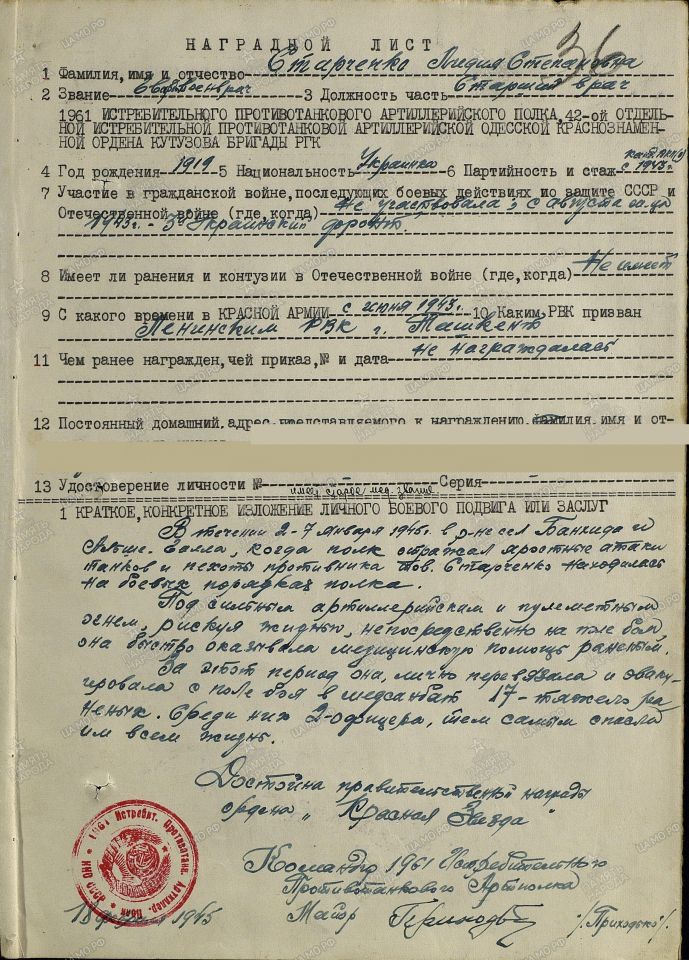 36
НАГРАДНОЙ ЛИСТ
1 Фамилия, имя и отчество Старченко Лидия Степановна
2 Звание Старший врач 3 Должность часть Старший врач
1961 ИСТРЕБИТЕЛЬНОГО ПРОТИВОТАНКОВОГО АРТИЛЛЕРИЙСКОГО ПОЛКА, 42-ой ОТДЕЛЬ-
НОЙ ИСТРЕБИТЕЛЬНОЙ ПРОТИВОТАНКОВОЙ АРТИЛЛЕРИЙСКОЙ ОДЕССКОЙ КРАСНОЗНАМЕН-
НОЙ ОРДЕНА КУТУЗОВА БРИГАДЫ РГК
4 Год рождения 1919 5 Национальность Украинка 6 Партийность и стаж канд. ВКП(б) с 1943г.
7 Участие в гражданской войне, последующих боевых действиях по защите СССР и
Отечественной войне (где, когда) Не участвовала, с августа м-ца
1943г. - 3й Украинский фронт
8 Имеет ли ранения и контузии в Отечественной войне (где, когда) Не имеет
9 С какого времени в КРАСНОЙ АРМИИ с июня 1943г. 10 Каким РВК призван
Ленинским РВК г. Ташкент
11 Чем ранее награжден, чей приказ, № и дата Не награждалась
12 Постоянный домашний адрес представляемого к награждению, фамилия, имя и от-
13 Удостоверение личности № имеет старое мед. звание Серия
1 КРАТКОЕ, КОНКРЕТНОЕ ИЗЛОЖЕНИЕ ЛИЧНОГО БОЕВОГО ПОДВИГА ИЛИ ЗАСЛУГ
В течении 2-7 января 1945г. в р-не сел Банхида и
Альше-Галла, когда полк отражал яростные атаки
танков и пехоты противника тов. Старченко находилась
на боевых порядках полка.
Под сильным артиллерийским и пулеметным
огнем, рискуя жизнью, непосредственно на поле боя,
она быстро оказывала медицинскую помощь раненым.
За этот период она, лично перевязала и эваку-
ировала с поля боя в медсанбат 17-тяжело ра-
неных. Среди них 2-офицера, тем самым спасла
им всем жизнь.
Достойна правительственной награды
ордена "Красная Звезда"
Командир 1961 Истребительного
Противотанкового Артполка
Майор /Приходько/
18 февраля 1945